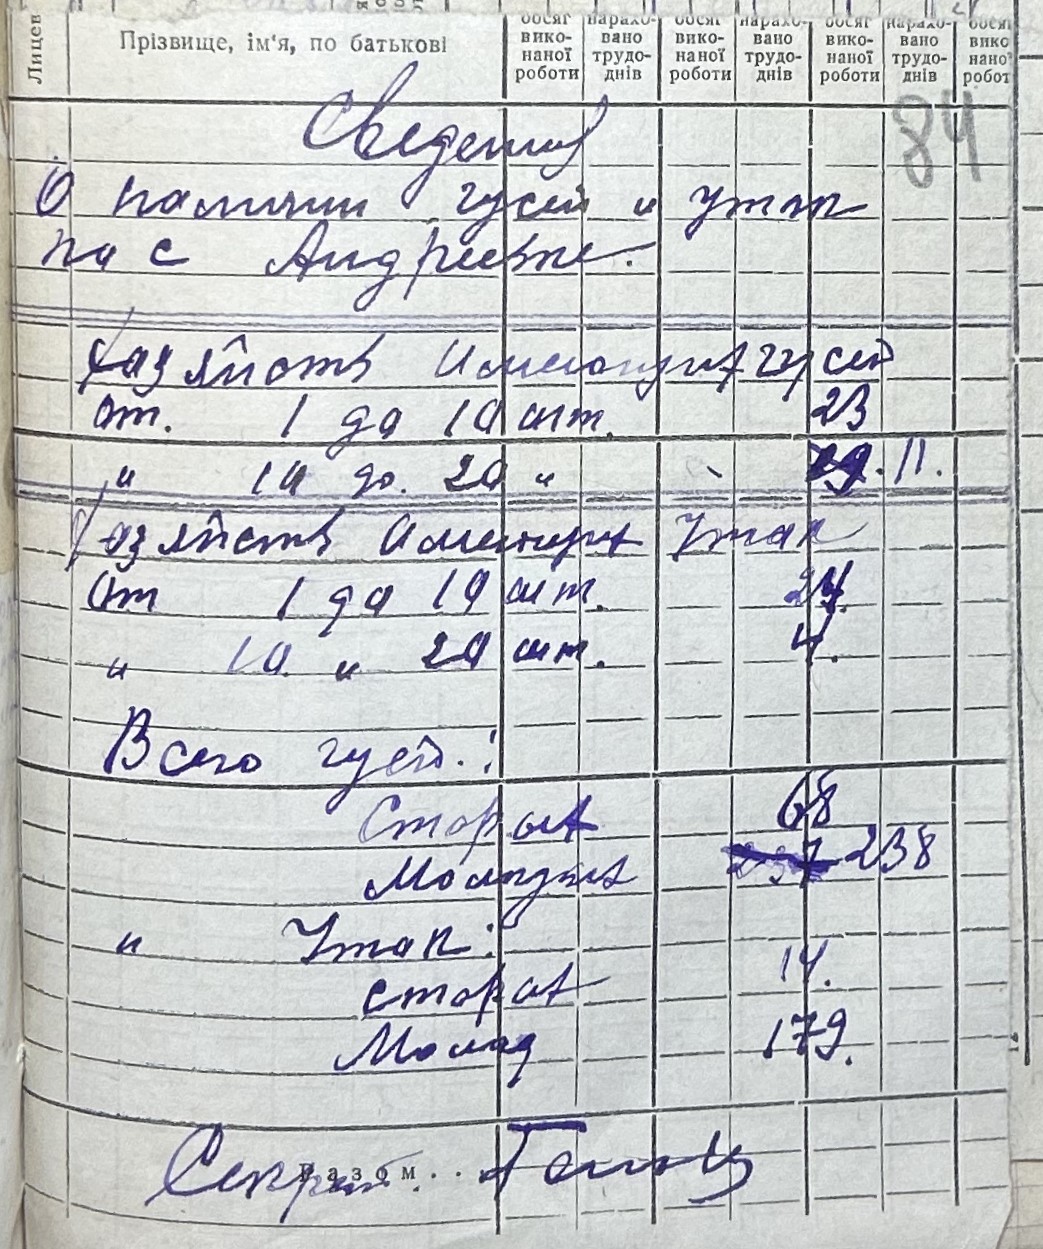 Лицев
Прізвище, ім'я, по батькові
обсяг виконаної роботи
нарахо-
вано
трудо-
днів
обсяг
вико-
наної
роботи
нарахо-
вано
трудо-
днів
обсяг
вико-
наної
роботи
нарахо-
вано
трудо-
днів
обсяг
вико
наної
робот
84
Сведения
О наличии гусей и уток
на с Андреевке.
Хазяйств имеющих гусей
от. 1 до 10 шт. 23
" 10 до. 20 " 11.
Хазяйств имеющих уток
от 1 до 10 шт. 24.
" 10. " 20 шт. 4.
Всего гусей:
Старых 68
Молодых 237 238
" Уток:
старых 14.
Молод 179.
Разом..
Секрет.